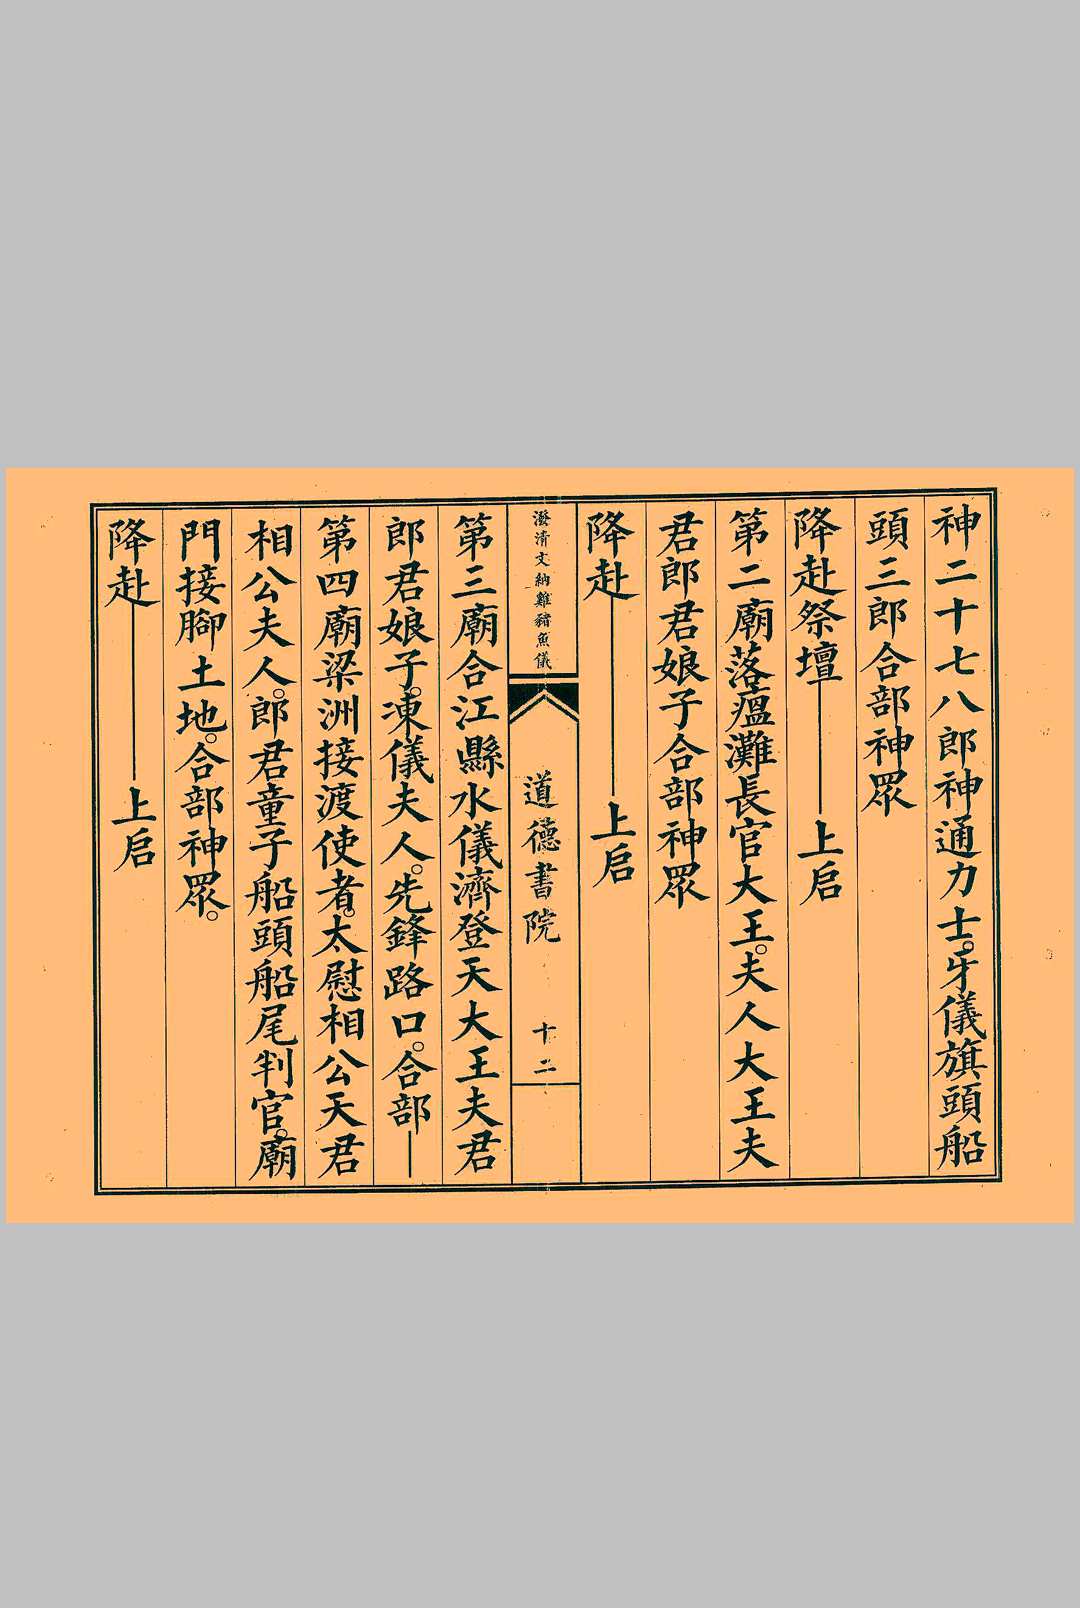 神二十七八郎神通力士。牙儀旗頭船
頭三郎合部神眾
降赴祭壇——上启
第二廟落瘟灘長官大王。夫人大王夫
君郎君娘子合部神眾
降赴——上启
潑清文納雞豬魚儀
道德書院
十二
第三廟合江縣水儀濟登天大王夫君
郎君娘子。凍儀夫人。先鋒路口。合部——
第四廟梁洲接渡使者。太慰相公天君
相公夫人。郎君童子船頭船尾判官。廟
門接腳土地。合部神眾。
降赴——上启